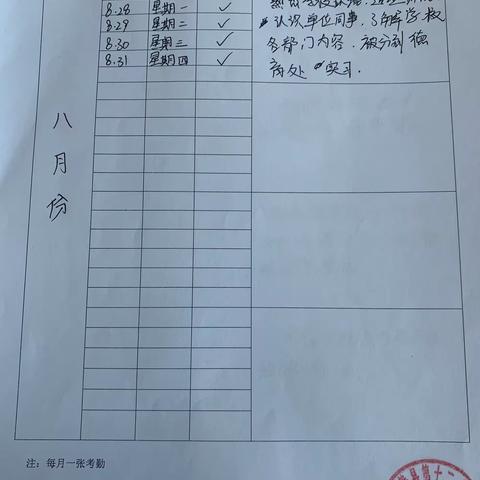 8.28 星期一 ✓
8.29 星期二 ✓ 认识单位同事,了解学校
8.30 星期三 ✓ 各部门内容,被分到德
8.31 星期四 ✓ 育处 实习.
八月份
注:每月一张考勤
县第十二